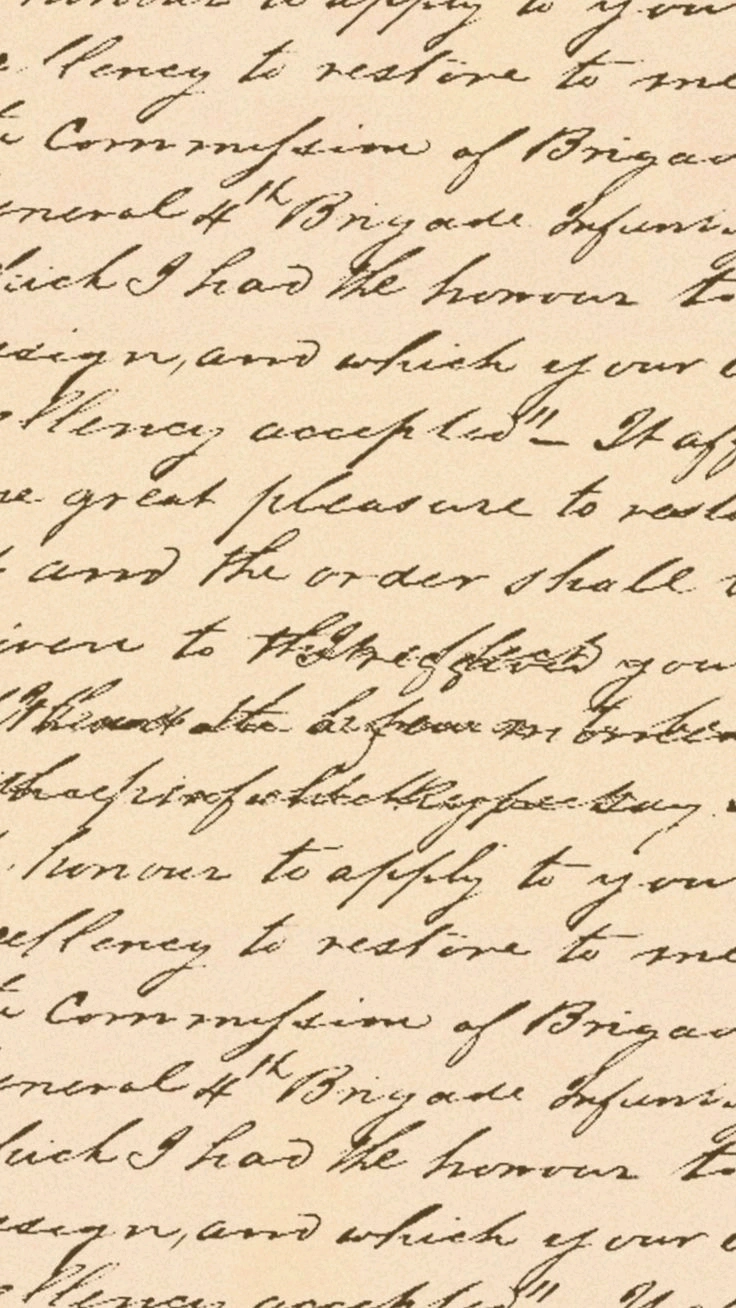 honour to apply to you
llency to restore to me
Commission of Brigad
eneral 4th Brigade Infant
hich I had the honour to
sign, and which your
ellency accepted" - It aff
me great pleasure to resto
and the order shall
iven to you

honour to apply to you
cellency to restore to me
Commission of Brigad
eneral 4th Brigade Infant
hich I had the honour to
sign, and which your
ellency accepted" - It